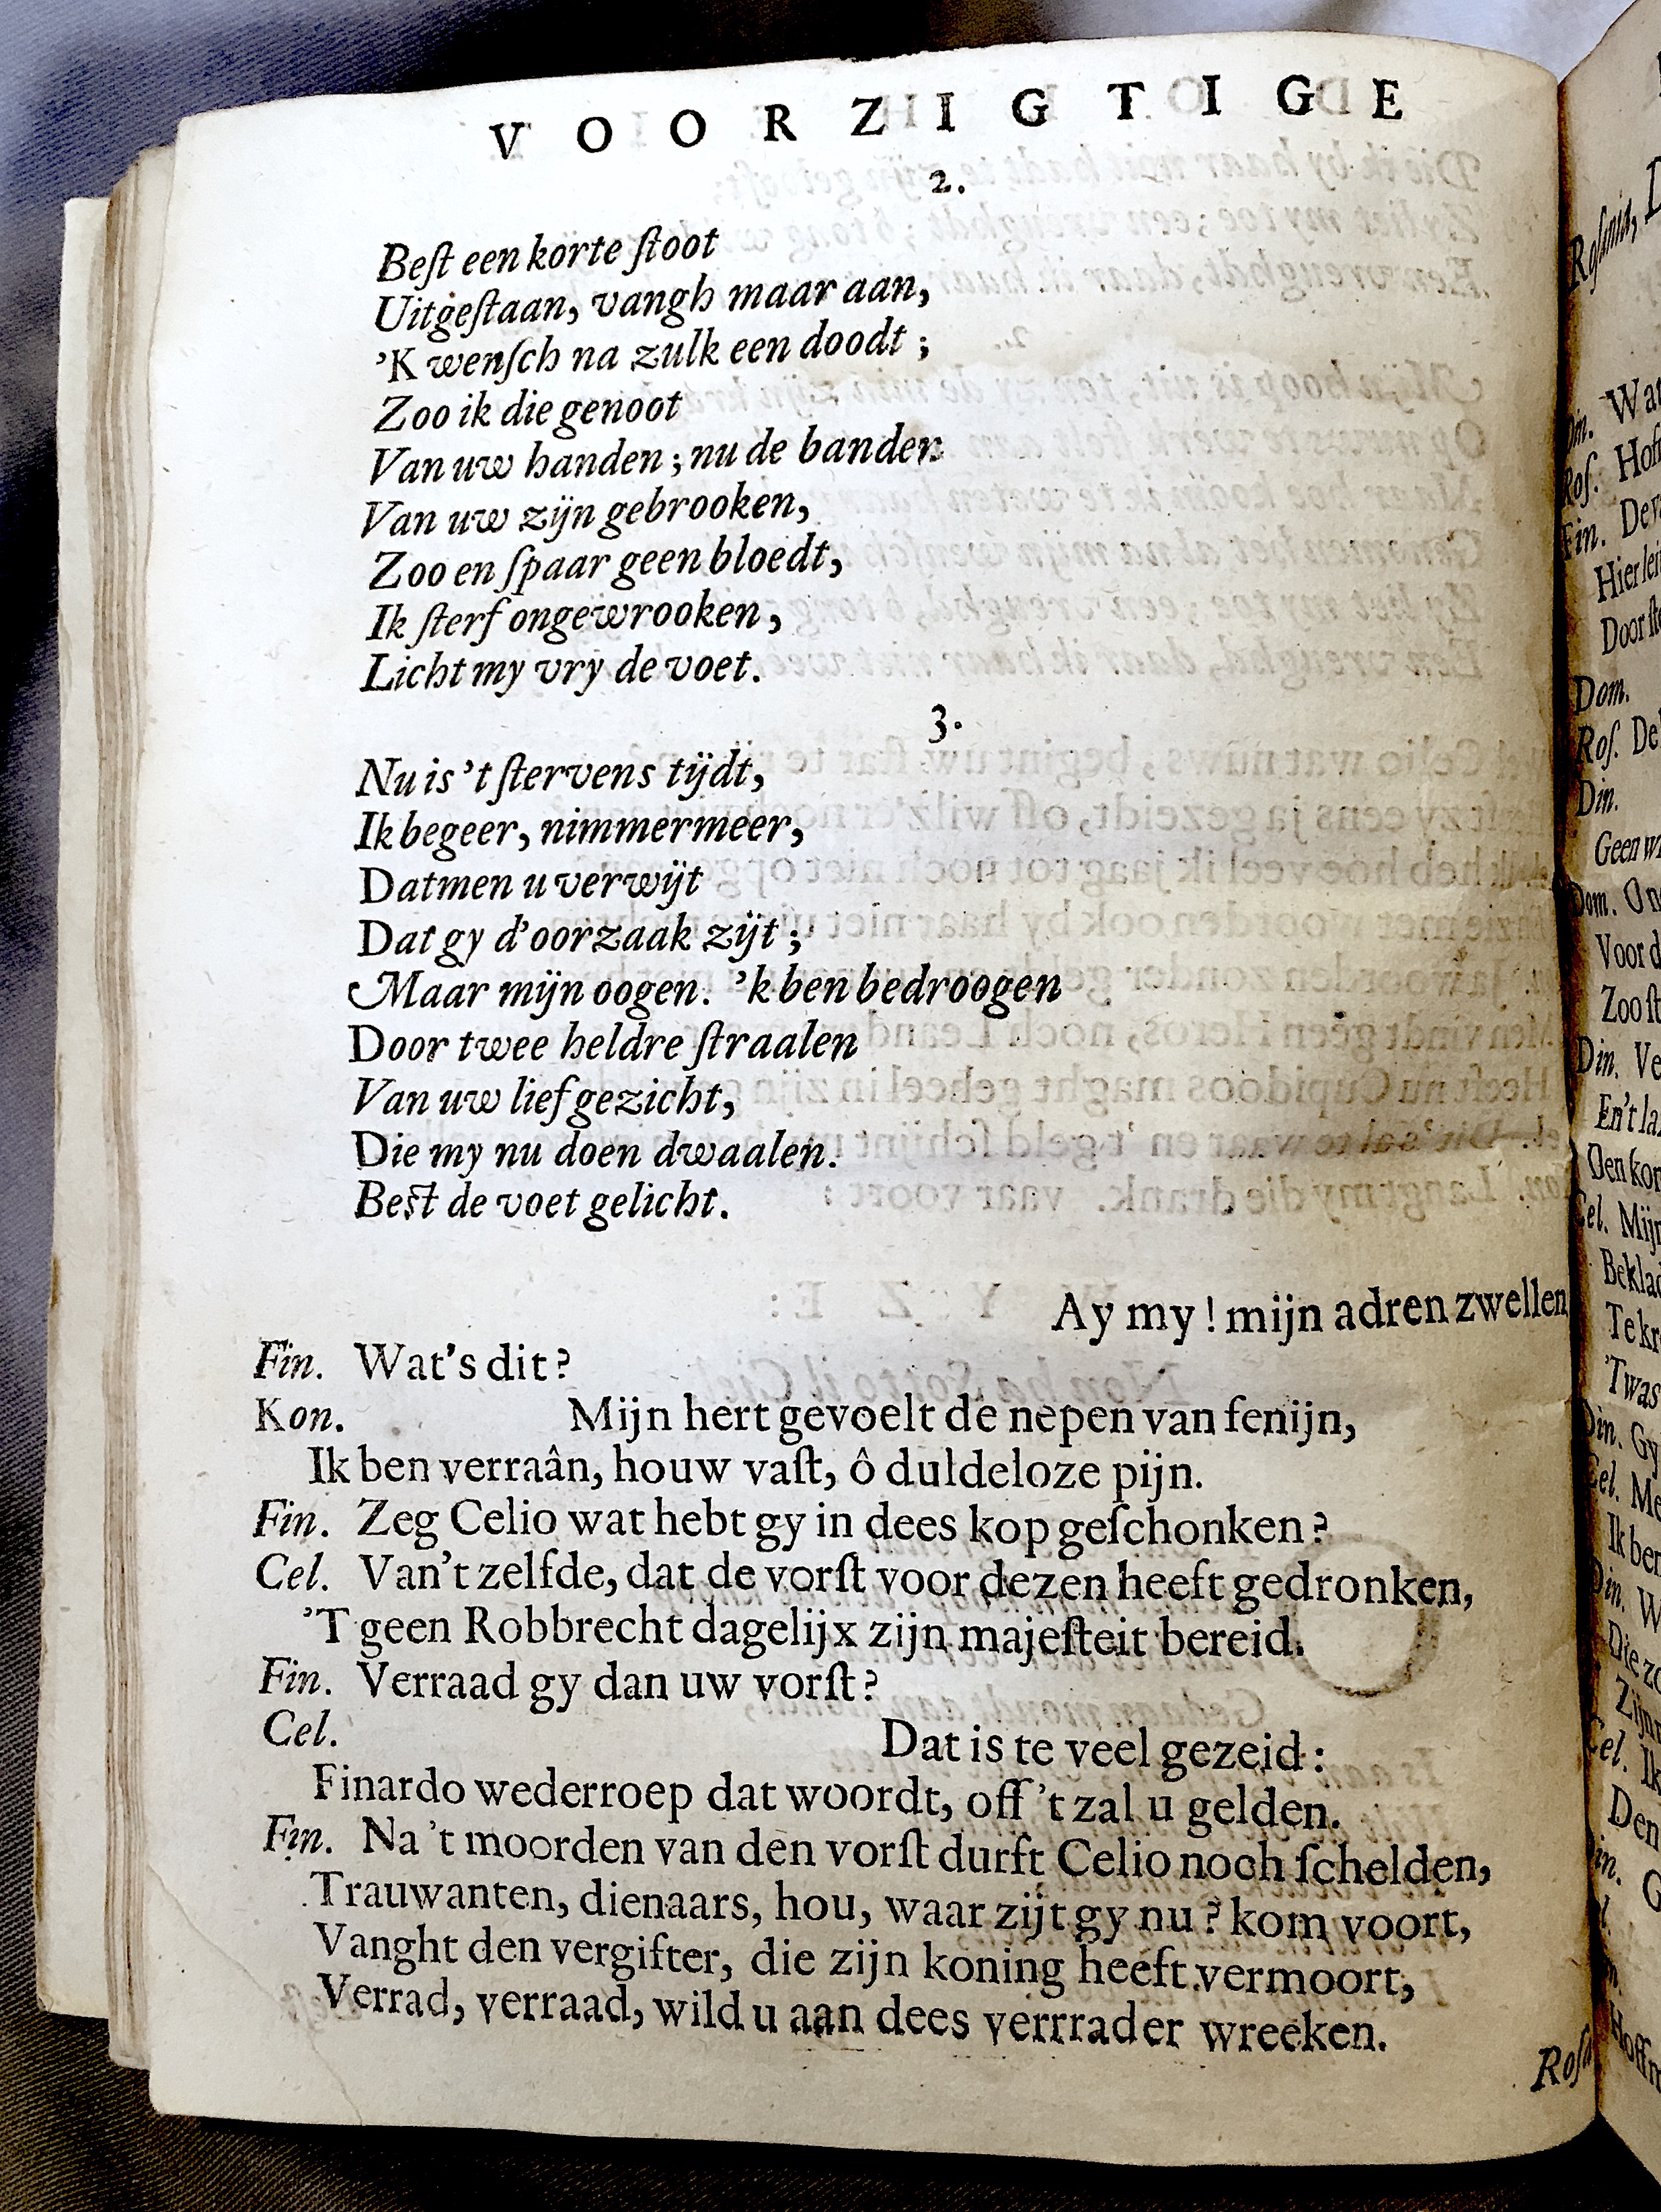 VOORZIGTIGE
2.
Beſt een korte ſtoot
Uitgeſtaan, vangh maar aan,
'K wenſch na zulk een doodt ;
Zoo ik die genoot
Van uw handen ; nu de banden
Van uw zijn gebrooken,
Zoo en ſpaar geen bloedt,
Ik ſterf ongewrooken ,
Licht my vry de voet.
3.
Nu is 't ſtervens tijdt,
Ik begeer, nimmermeer,
Datmen u verwijt
Dat gy d'oorzaak zijt ;
Maar mijn oogen. 'k ben bedroogen
Door twee heldre ſtraalen
Van uw lief gezicht,
Die my nu doen dwaalen.
Beſt de voet gelicht.
Ay my ! mijn adren zwellen
Fin. Wat's dit ?
Kon. Mijn hert gevoelt de nepen van fenijn,
Ik ben verraân, houw vaſt, ô duldeloze pijn.
Fin. Zeg Celio wat hebt gy in dees kop geſchonken ?
Cel. Van't zelfde, dat de vorſt voor dezen heeft gedronken,
'T geen Robbrecht dagelijx zijn majeſteit bereid.
Fin. Verraad gy dan uw vorſt ?
Cel. Dat is te veel gezeid :
Finardo wederroep dat woordt, off 't zal u gelden.
Fin. Na 't moorden van den vorſt durft Celio noch ſchelden,
Trauwanten, dienaars, hou, waar zijt gy nu ? kom voort,
Vanght den vergifter, die zijn koning heeft vermoort,
Verrad, verraad, wild u aan dees verrrader wreeken.